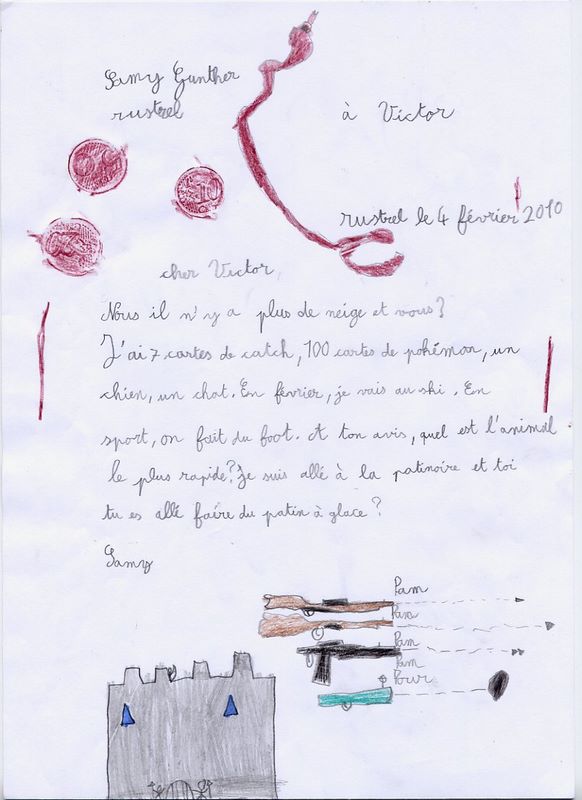 Samy Gunther
rustrel
à Victor
rustrel le 4 février 2010
cher Victor,
Nous il n'y a plus de neige et vous?
J'ai 7 cartes de catch, 100 cartes de pokémon, un
chien, un chat. En février, je vais au ski. En
sport, on fait du foot. A ton avis, quel est l'animal
le plus rapide? Je suis allé à la patinoire et toi
tu es allé faire du patin à glace?
Samy
Pam
Pam
Pam
Pam
Pour